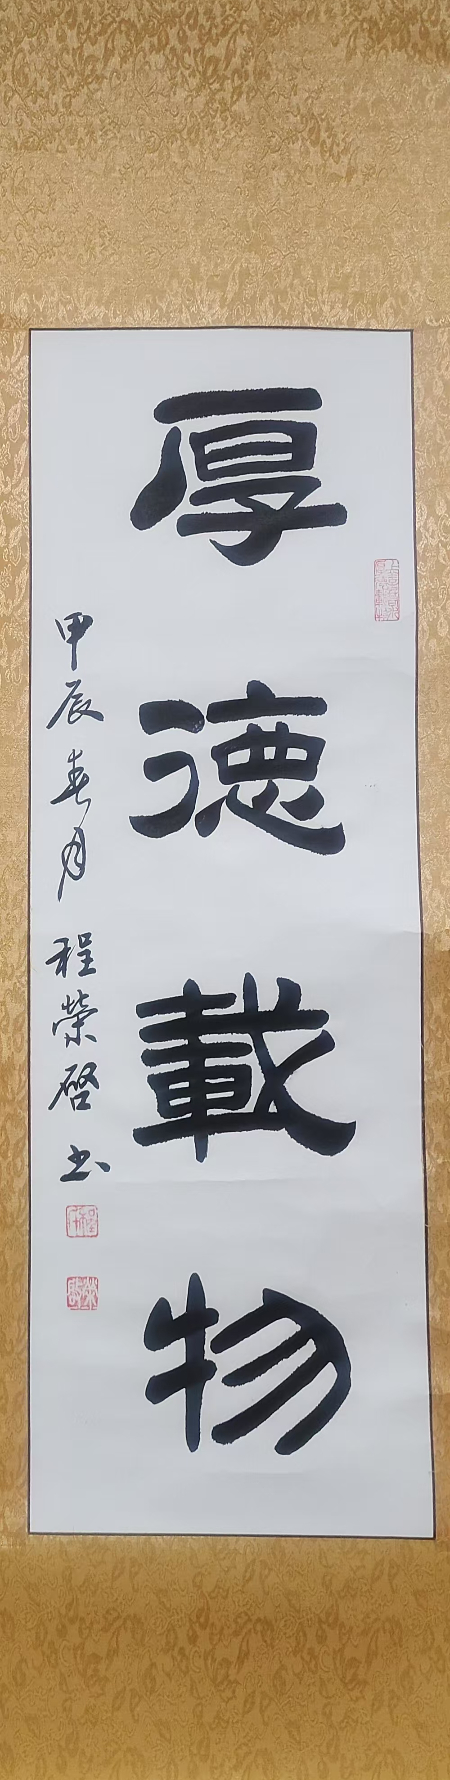 厚德載物
甲辰春月程榮啓书